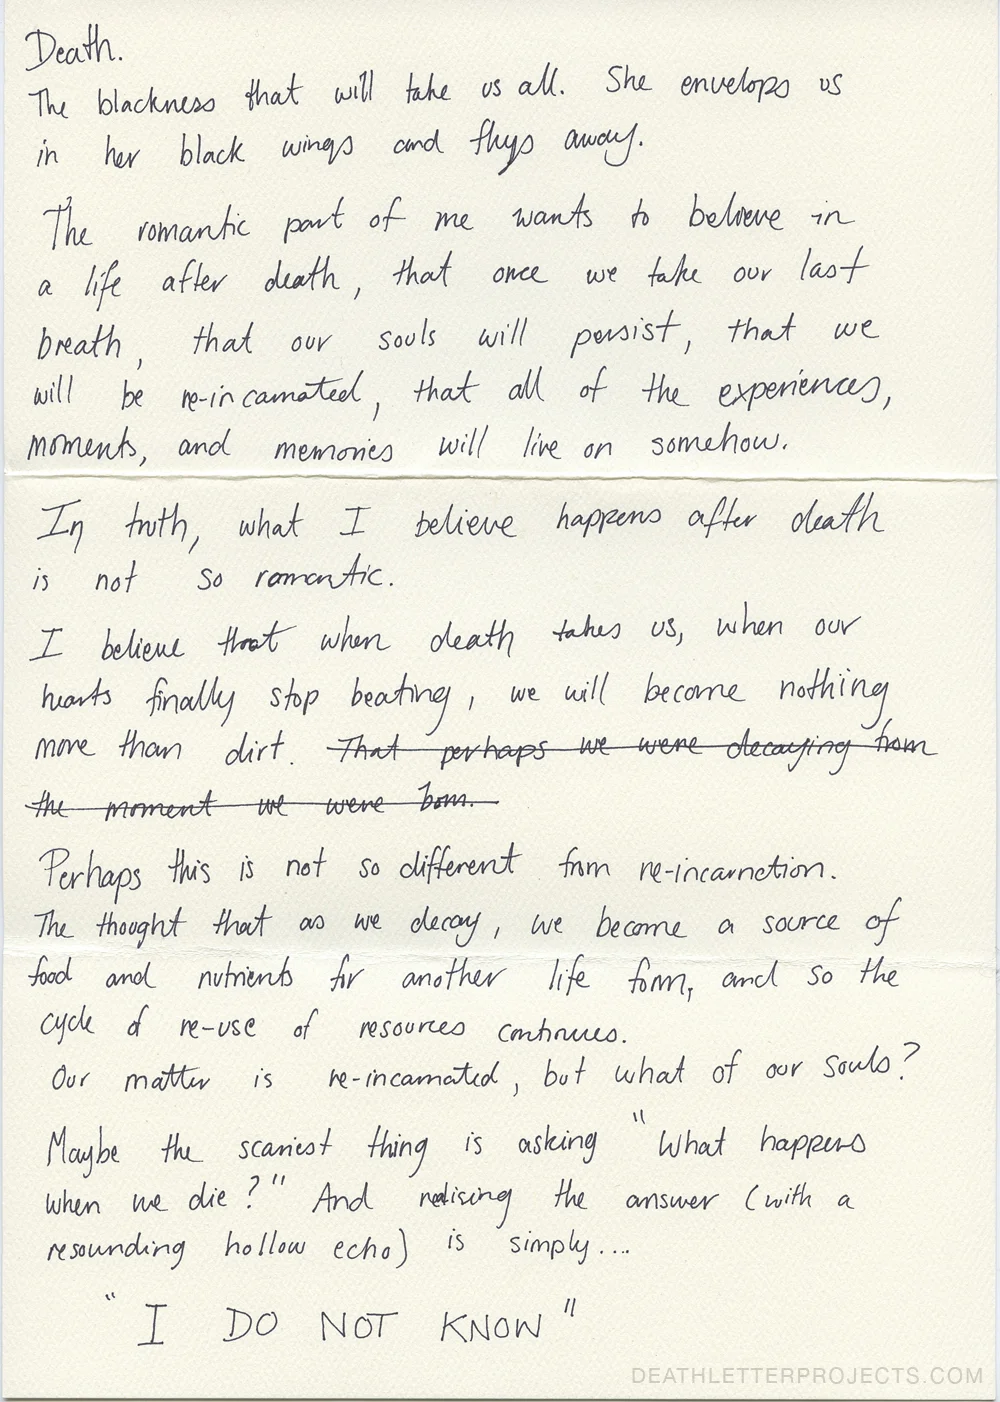 Death.
The blackness that will take us all. She envelops us
in her black wings and flys away.
The romantic part of me wants to believe in
a life after death, that once we take our last
breath, that our souls will persist, that we
will be re-incarnated, that all of the experiences,
moments, and memories will live on somehow.
In truth, what I believe happens after death
is not so romantic.
I believe that when death takes us, when our
hearts finally stop beating, we will become nothing
more than dirt. That perhaps we were decaying from
the moment we were born.
Perhaps this is not so different from re-incarnation.
The thought that as we decay, we become a source of
food and nutrients for another life form, and so the
cycle of re-use of resources continues.
Our matter is re-incarnated, but what of our souls?
Maybe the scariest thing is asking "What happens
when we die?" And realising the answer (with a
resounding hollow echo) is simply....
"I DO NOT KNOW"
DEATHLETTERPROJECTS.COM